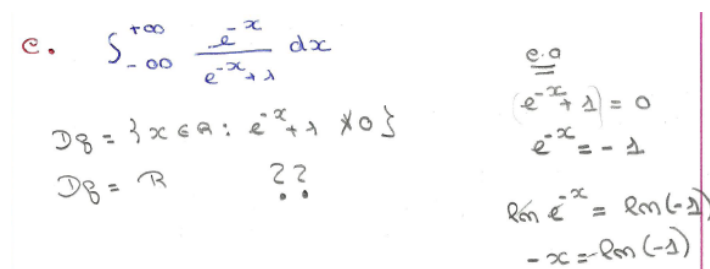 c. ∫_{-∞}^{+∞} e^{-x}/(e^{-x}+1) dx
Df = {x ∈ R : e^{-x}+1 ≠ 0}
Df = R ??
c.a
(e^{-x}+1) = 0
e^{-x} = -1
ln e^{-x} = ln(-1)
-x = ln(-1)